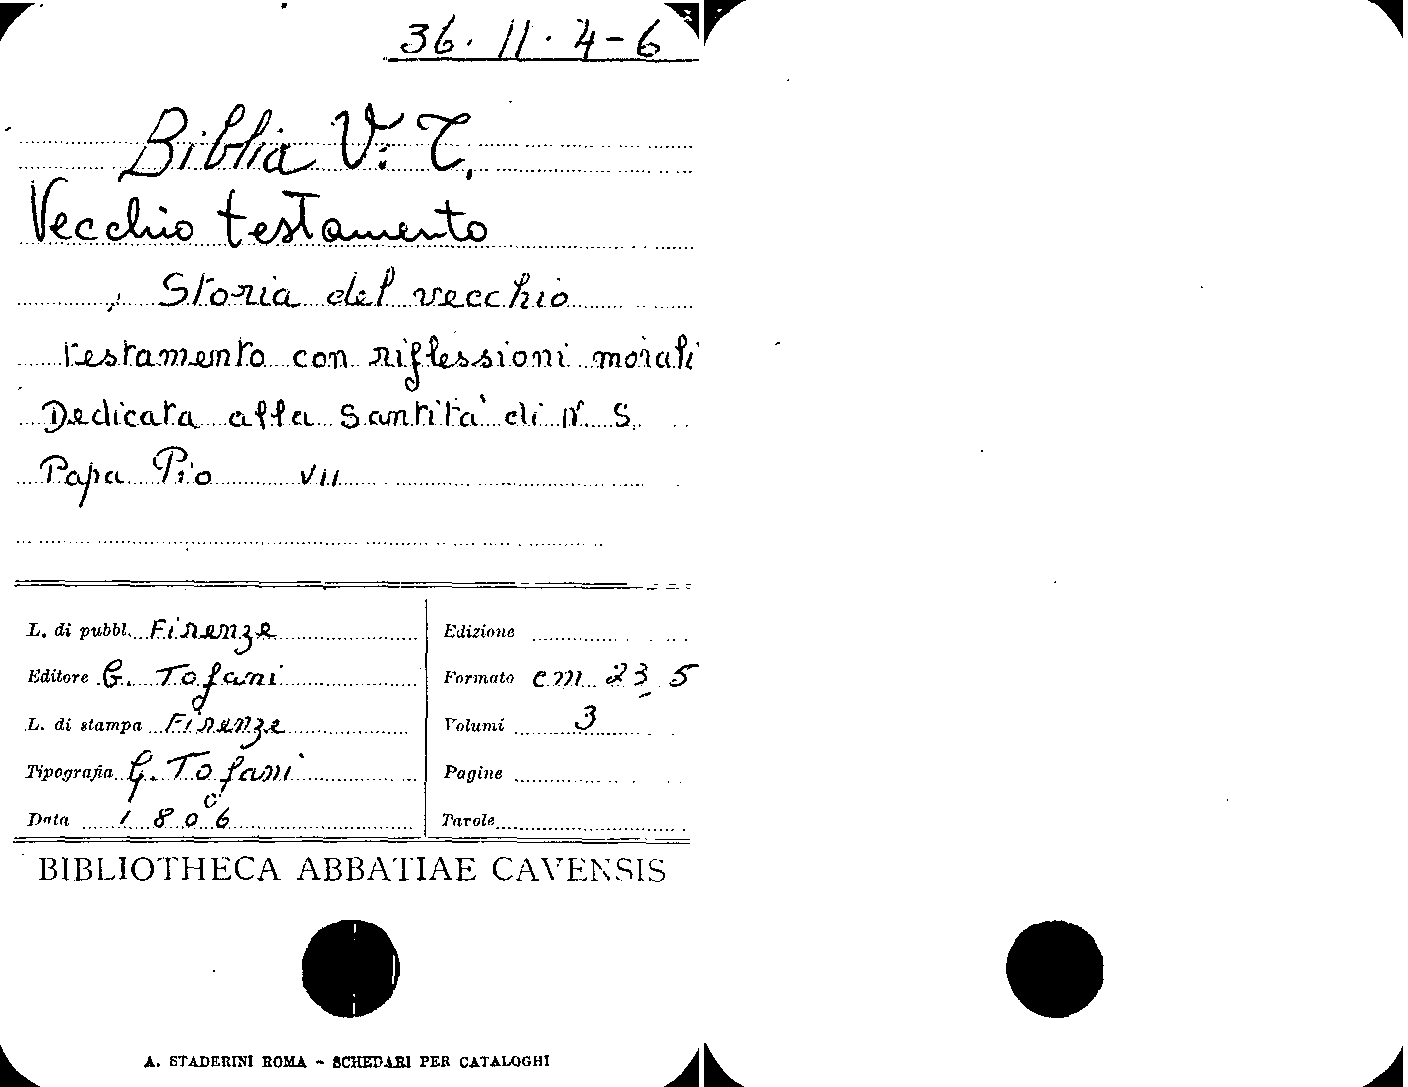 36. 11. 4-6
Biblia V. T.
Vecchio testamento
Storia del vecchio
testamento con riflessioni morali
Dedicata alla Santità di N. S.
Papa Pio VII
L. di pubbl. Firenze
Editore G. Tofani
L. di stampa Firenze
Tipografia G. Tofani
Data 1806
Edizione
Formato cm 23,5
Volumi 3
Pagine
Tavole
BIBLIOTHECA ABBATIAE CAVENSIS
A. STADERINI ROMA - SCHEDARI PER CATALOGHI